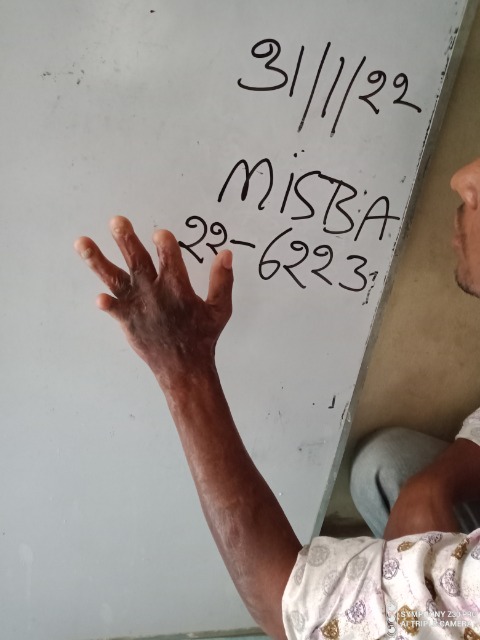 31/1/22
MISBA
22-6223
SYMPHONY Z30 PRO
AI TRIPLE CAMERA